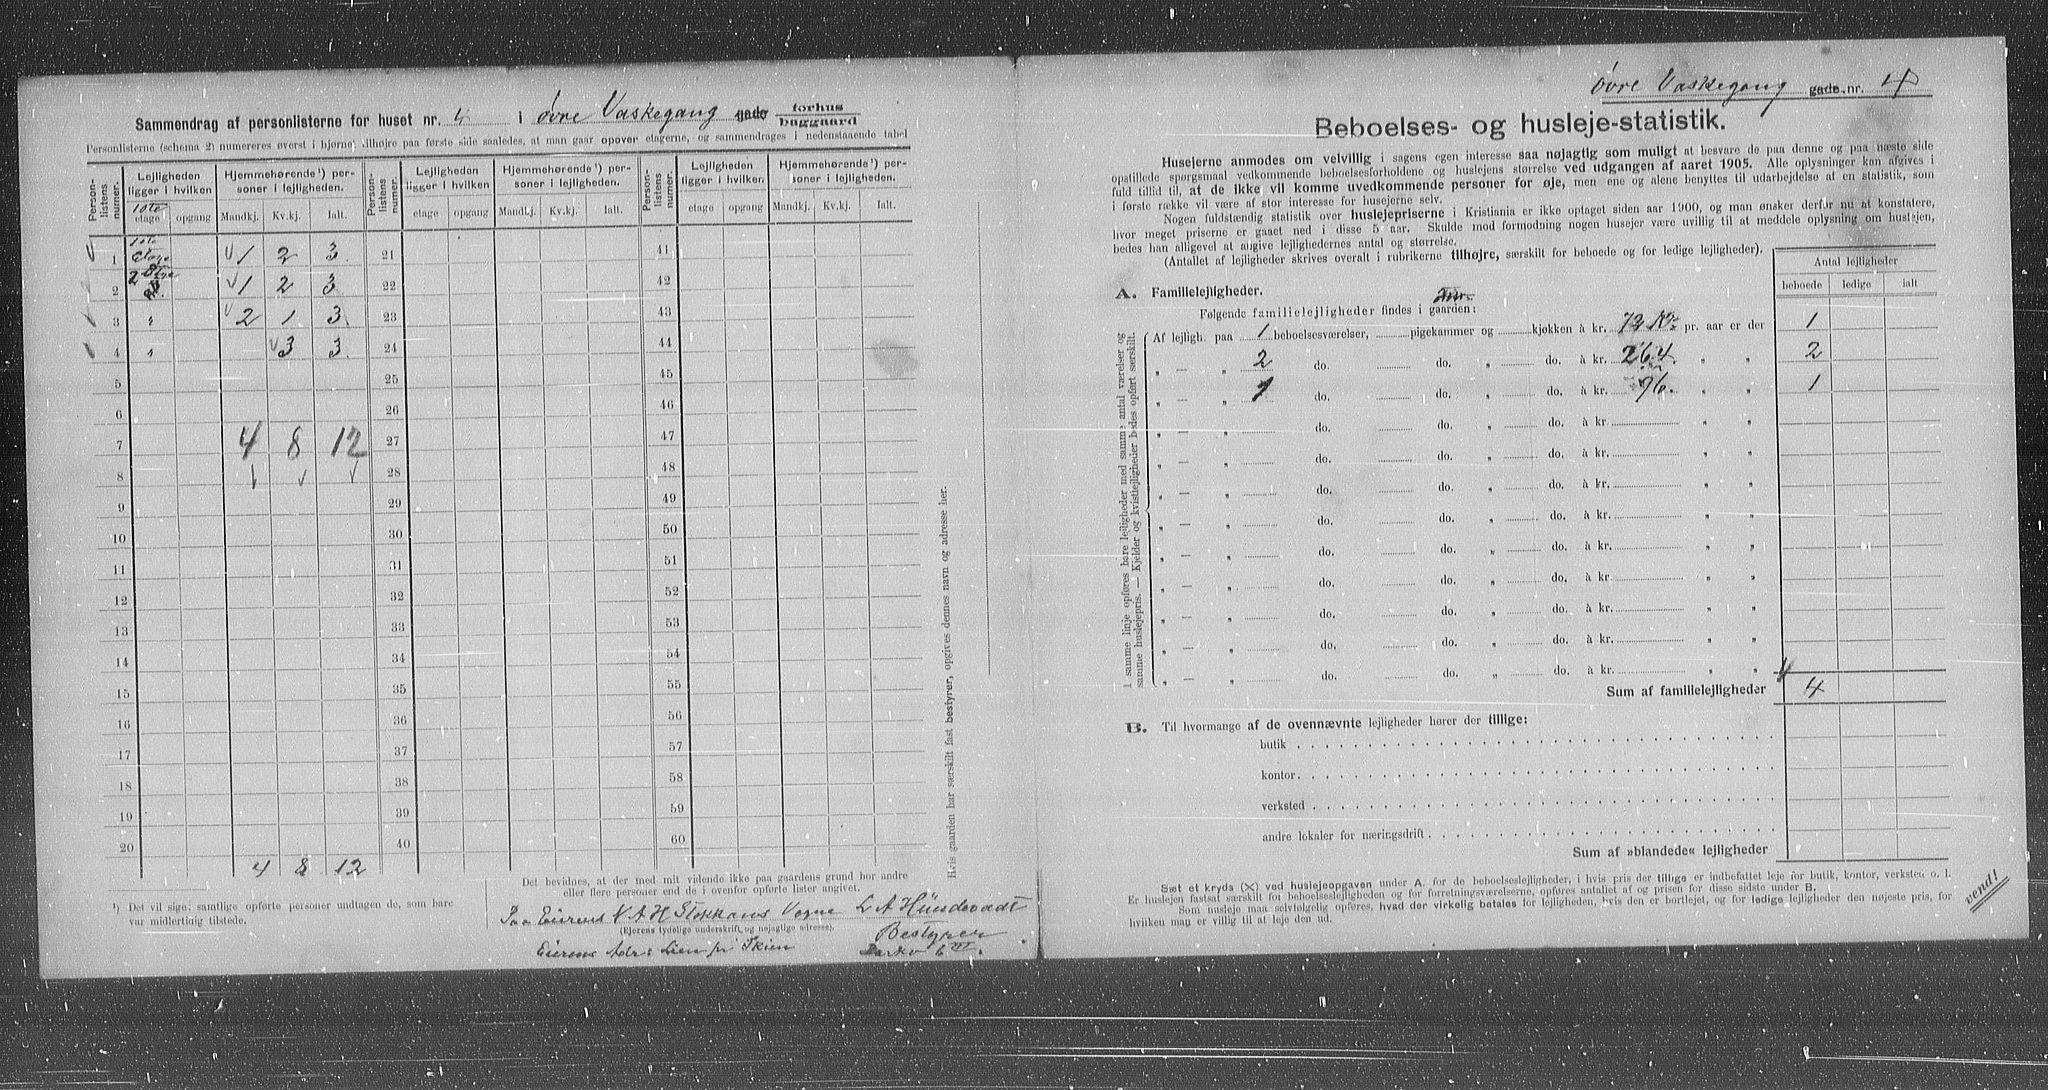 Sammendrag af personlisterne for huset nr. 4 i øvre Vaskegang gade forhus
baggaard
Personlisterne (schema 2) numereres øverst i hjørnet tilhøjre paa første side saaledes, at man gaar opover etagerne, og sammendrages i nedenstaaende tabel
Person-listens numer. | Lejligheden ligger i hvilken | Hjemmehørende¹) personer i lejligheden. | Person-listens numer. | Lejligheden ligger i hvilken | Hjemmehørende¹) personer i lejligheden. | Person-listens numer. | Lejligheden ligger i hvilken | Hjemmehørende¹) personer i lejligheden.
etage | opgang | Mandkj. | Kv.kj. | Ialt. | etage | opgang | Mandkj. | Kv.kj. | Ialt. | etage | opgang | Mandkj. | Kv.kj. | Ialt.
1 | 1ote Etage | 1 | 2 | 3 | 21 | 41
2 | 2 Etage | 1 | 2 | 3 | 22 | 42
3 | " | 2 | 1 | 3. | 23 | 43
4 | " | 3 | 3. | 24 | 44
5 | 25 | 45
6 | 26 | 46
7 | 4 | 8 | 12 | 27 | 47
8 | 28 | 48
9 | 29 | 49
10 | 30 | 50
11 | 31 | 51
12 | 32 | 52
13 | 33 | 53
14 | 34 | 54
15 | 35 | 55
16 | 36 | 56
17 | 37 | 57
18 | 38 | 58
19 | 39 | 59
20 | 40 | 60
4 8 12
¹) Det vil sige: samtlige opførte personer undtagen de, som bare
var midlertidig tilstede.
Det bevidnes, at der med mit vidende ikke paa gaardens grund bor andre
eller flere personer end de i ovenfor opførte lister angivet.
Paa Eierens N A H Stokkans Vegne L A Hündevadt
(Ejerens tydelige underskrift og nøjagtige adresse).
Bestyrer
Eierens Adr: Lien pr Skien
Hvis gaarden har særskilt fast bestyrer, opgives dennes navn og adresse her.
øvre Vaskegang gade nr. 4
Beboelses- og husleje-statistik.
Husejerne anmodes om velvillig i sagens egen interesse saa nøjagtig som muligt at besvare de paa denne og paa næste side
opstillede spørgsmaal vedkommende beboelsesforholdene og huslejens størrelse ved udgangen af aaret 1905. Alle oplysninger kan afgives i
fuld tillid til, at de ikke vil komme uvedkommende personer for øje, men ene og alene benyttes til udarbejdelse af en statistik, som
i første række vil være af stor interesse for husejerne selv.
Nogen fuldstændig statistik over huslejepriserne i Kristiania er ikke optaget siden aar 1900, og man ønsker derfor nu at konstatere,
hvor meget priserne er gaaet ned i disse 5 aar. Skulde mod formodning nogen husejer være uvillig til at meddele oplysning om huslejen,
bedes han alligevel at angive lejlighedernes antal og størrelse.
(Antallet af lejligheder skrives overalt i rubrikerne tilhøjre, særskilt for beboede og for ledige lejligheder).
Antal lejligheder
beboede | ledige | ialt
A. Familielejligheder.
Følgende familielejligheder findes i gaarden:
I samme linje opføres bare lejligheder med samme antal værelser og
samme huslejepris. — Kjelder og kvistlejligheder bedes opført særskilt.
Af lejligh. paa 1 beboelsesværelser, pigekammer og kjøkken à kr. 72 pr. aar er der 1
" — " 2 do. do. " do. à kr. 264. " " 2
" — " 1 do. do. " do. à kr. 96. " " 1
" — " do. do. " do. à kr. " "
" — " do. do. " do. à kr. " "
" — " do. do. " do. à kr. " "
" — " do. do. " do. à kr. " "
" — " do. do. " do. à kr. " "
" — " do. do. " do. à kr. " "
" — " do. do. " do. à kr. " "
" — " do. do. " do. à kr. " "
" — " do. do. " do. à kr. " "
Sum af familielejligheder 4
B. Til hvormange af de ovennævnte lejligheder hører der tillige:
butik
kontor
verksted
andre lokaler for næringsdrift
Sum af »blandede« lejligheder
Sæt et kryds (X) ved huslejeopgaven under A. for de beboelseslejligheder, i hvis pris der tillige er indbefattet leje for butik, kontor, verksted o. l.
Er huslejen fastsat særskilt for beboelseslejligheden og for forretningsværelserne, opføres antallet af og prisen for disse sidste under B.
Som husleje maa selvfølgelig opføres, hvad der virkelig betales for lejligheden, hvis den er bortlejet, og for ledige lejligheder den nøjeste pris, for
hvilken man er villig til at leje den ud.
vend!